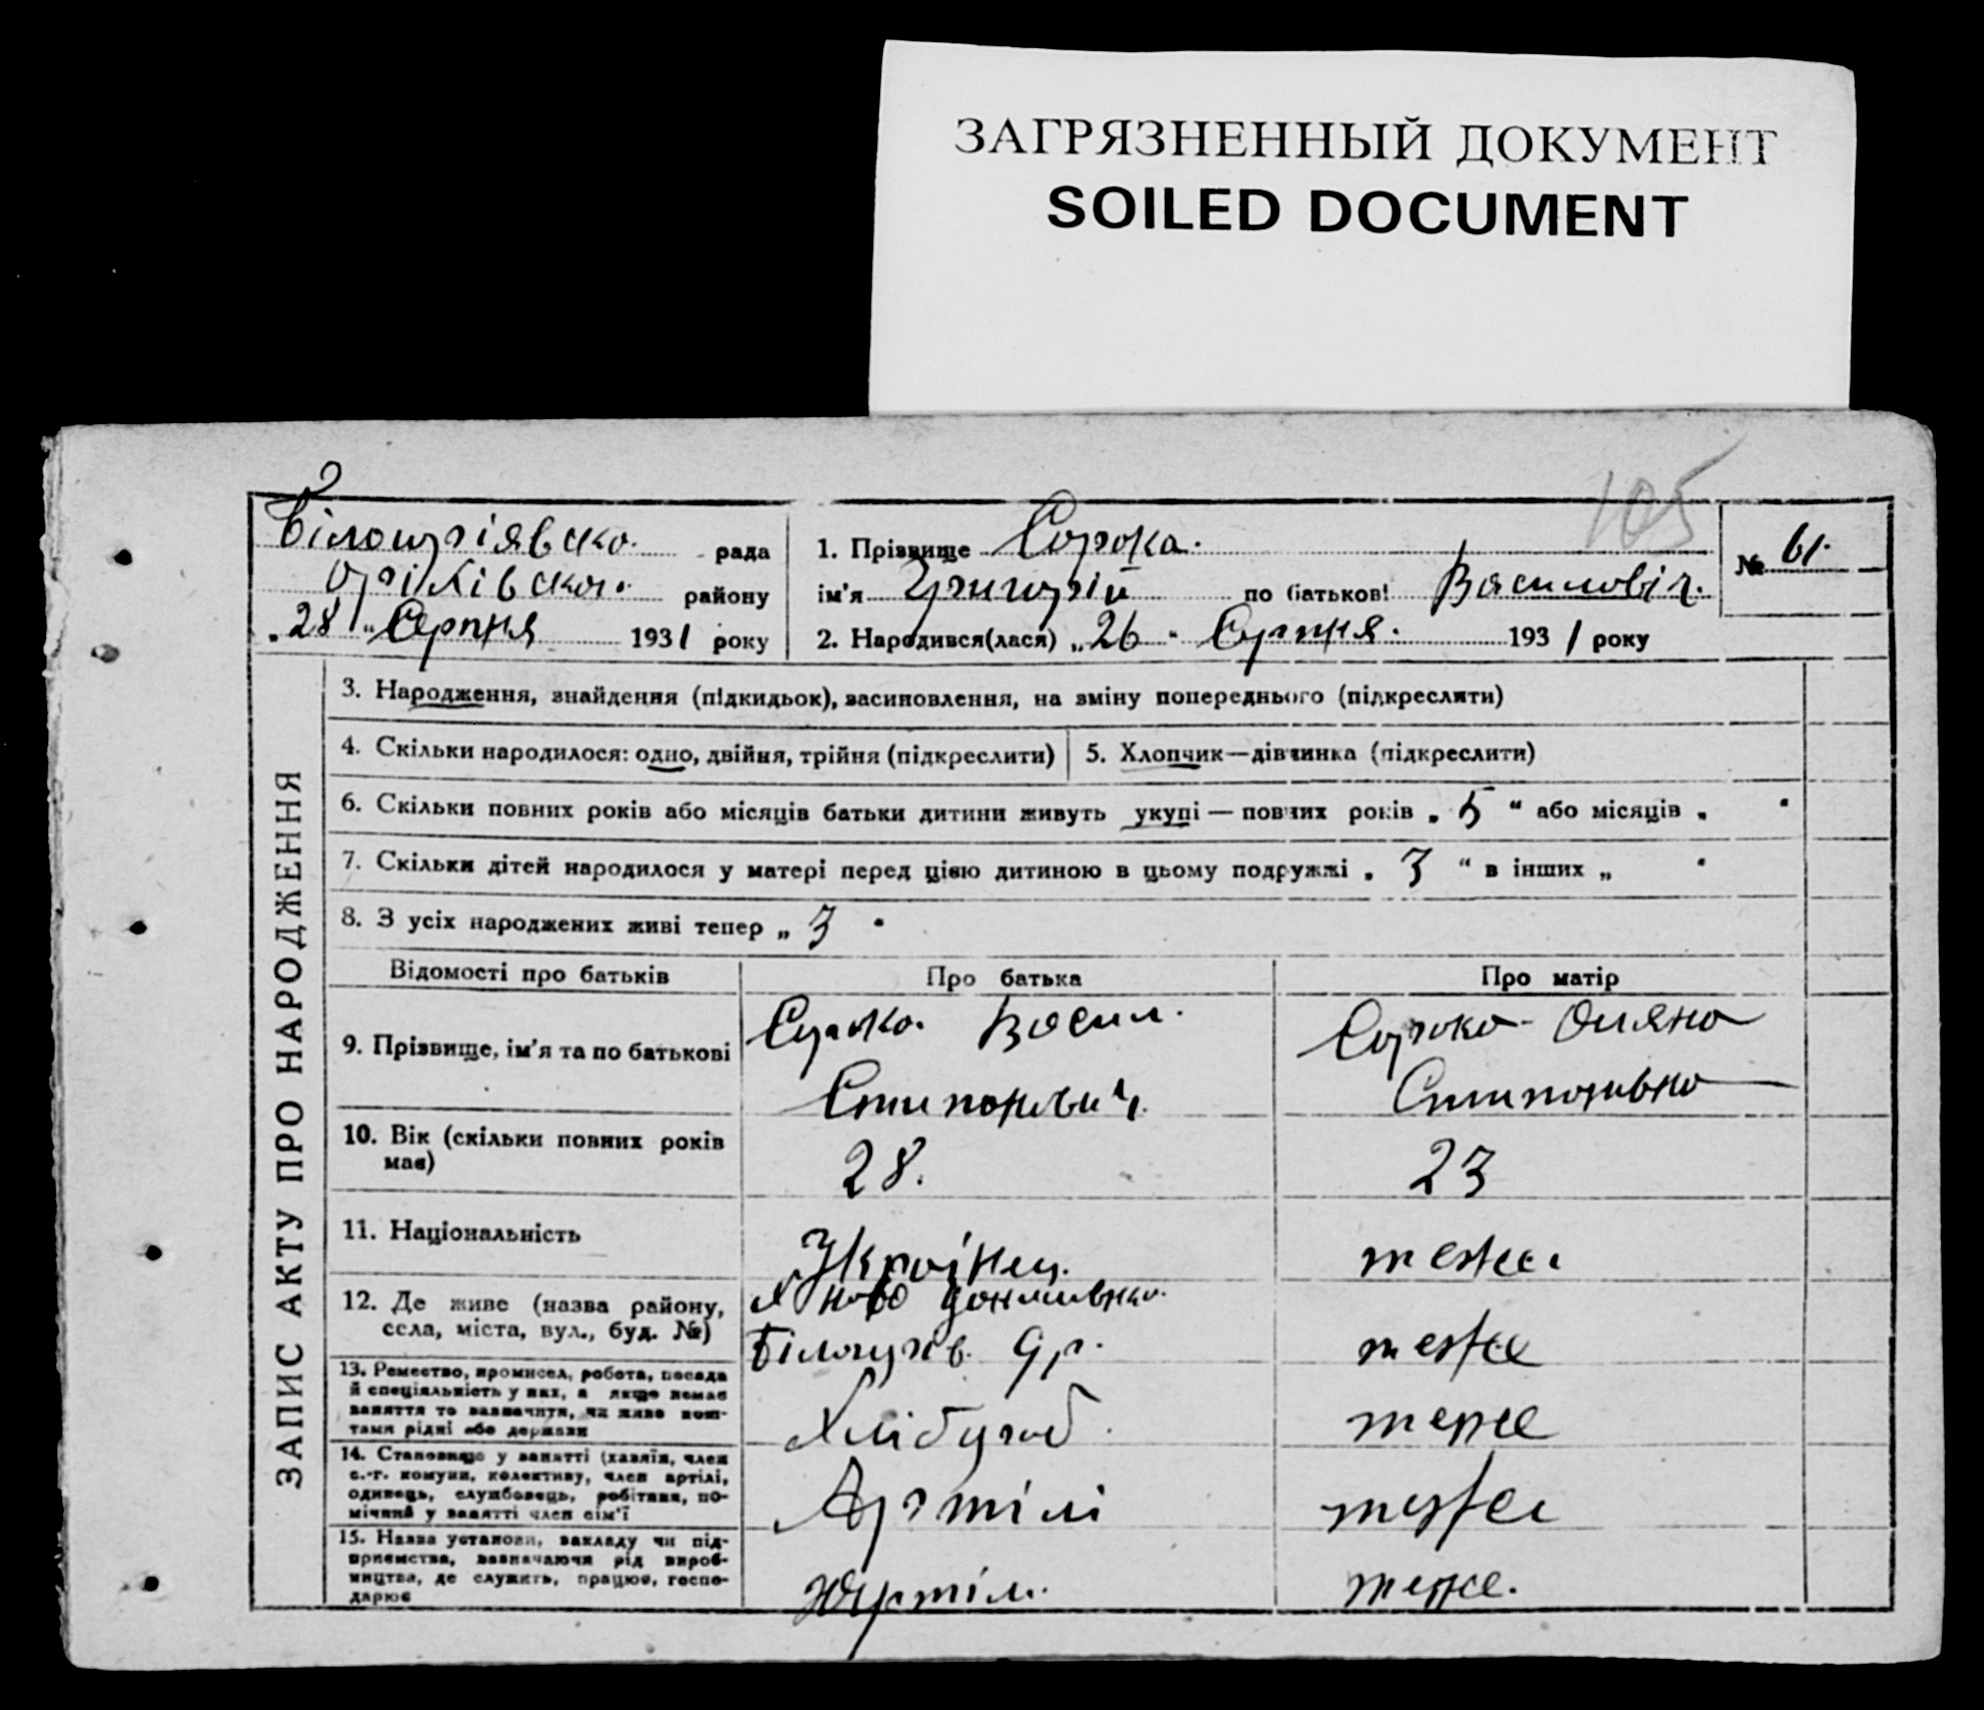 ЗАГРЯЗНЕННЫЙ ДОКУМЕНТ
SOILED DOCUMENT
105
рада
району
„28“ Серпня 1931 року
1. Прізвище Сорока.
ім'я Григорій по батькові Василовіч.
2. Народився(лася) „26“ Серпня. 1931 року
№ 61.
ЗАПИС АКТУ ПРО НАРОДЖЕННЯ
3. Народження, знайдення (підкидьок), засиновлення, на зміну попереднього (підкреслити)
4. Скільки народилося: одно, двійня, трійня (підкреслити)
5. Хлопчик—дівчинка (підкреслити)
6. Скільки повних років або місяців батьки дитини живуть укупі — повних років „5“ або місяців „ “
7. Скільки дітей народилося у матері перед цією дитиною в цьому подружжі „3“ в інших „ “
8. З усіх народжених живі тепер „3“
Відомості про батьків
Про батька
Про матір
9. Прізвище, ім'я та по батькові
Сорока. Васил.
Сорока
10. Вік (скільки повних років
має)
28.
23
11. Національність
Українец.
теже
12. Де живе (назва району,
села, міста, вул., буд. №)
теже
13. Ремество, промисел, робота, посада
й спеціяльність у них, а якщо немає
заняття то зазначити, чи живе кош-
тами рідні або держави
Хлібороб.
теже
14. Становище у занятті (хазяїн, член
с.-г. комуни, колективу, член артілі,
одинець, службовець, робітник, по-
мічний у занятті член сім'ї
Артілі
теже
15. Назва установи, закладу чи під-
приємства, зазначаючи рід вироб-
ництва, де служить, працює, госпо-
дарює
теже.